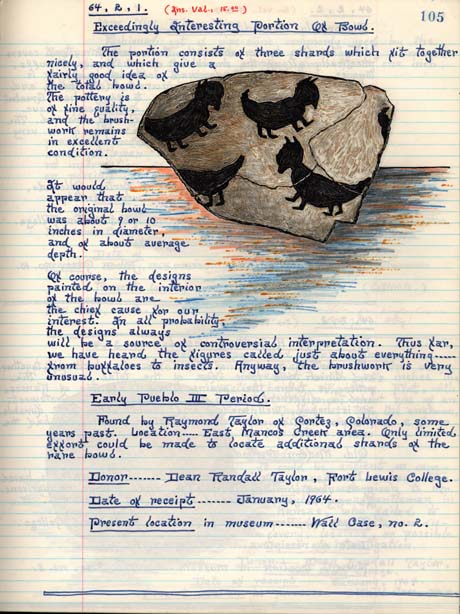 64, 2, 1. (Ins. Val., 15.00)
105
Exceedingly Interesting Portion Of Bowl.
The portion consists of three shards which fit together
nicely, and which give a
fairly good idea of
the total bowl.
The pottery is
of fine quality,
and the brush-
work remains
in excellent
condition.
It would
appear that
the original bowl
was about 9 or 10
inches in diameter,
and of about average
depth.
Of course, the designs
painted on the interior
of the bowl are
the chief cause for our
interest. In all probability,
the designs always
will be a source of controversial interpretation. Thus far,
we have heard the figures called just about everything-----
from buffaloes to insects. Anyway, the brushwork is very
unusual.
Early Pueblo III Period.
Found by Raymond Taylor of Cortez, Colorado, some
years past. Location---- East Mancos Creek area. Only limited
effort could be made to locate additional shards of the
rare bowl.
Donor------- Dean Randall Taylor, Fort Lewis College.
Date of receipt------- January, 1964.
Present location in museum------- Wall Case, no. 2.